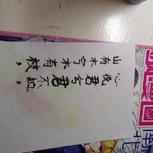 山有木兮木有枝,
心悦君兮君不知,